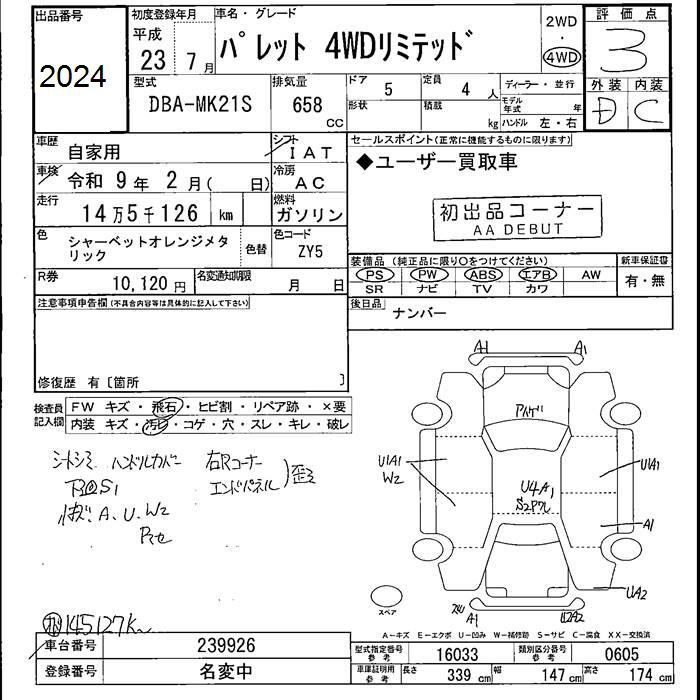 出品番号
2024
初度登録年月
平成
23 7月
車名・グレード
パレット 4WDリミテッド
2WD
・
4WD
評価点
3
外装 内装
D C
型式
DBA-MK21S
排気量
658
CC
ドア 5
形状
定員 4人
積載 kg
ディーラー・並行
モデル年式 年
ハンドル 左・右
車歴 自家用
シフト IAT
車検 令和 9年 2月( 日)
冷房 AC
走行 14万5千126 km
燃料 ガソリン
色 シャーベットオレンジメタリック
色替
色コード ZY5
R券 10,120円
名変通知期限 月 日
セールスポイント(正常に機能するものに限ります)
◆ユーザー買取車
初出品コーナー
AA DEBUT
装備品(純正品に限り○をつけてください)
PS PW ABS エアB AW
SR ナビ TV カワ
新車保証書
有・無
後日品 ナンバー
注意事項申告欄(不具合内容等は具体的に記入して下さい)
修復歴 有〔箇所 〕
検査員記入欄
FW キズ・飛石・ヒビ割・リペア跡・×要
内装 キズ・汚レ・コゲ・穴・スレ・キレ・破レ
シートシミ ハンドルカバー 右Rコーナー
エンドパネル)歪
A、U、W2
A1 A1
U1A1
W2
U4A1
U1A1
A1
UA2
A1
スペア
A-キズ E-エクボ U-凹み W-補修跡 S-サビ C-腐食 XX-交換済
145127K
車台番号 239926
登録番号 名変中
型式指定番号 参考 16033
類別区分番号 参考 0605
車庫証明用 参考 長さ 339cm 幅 147cm 高さ 174cm